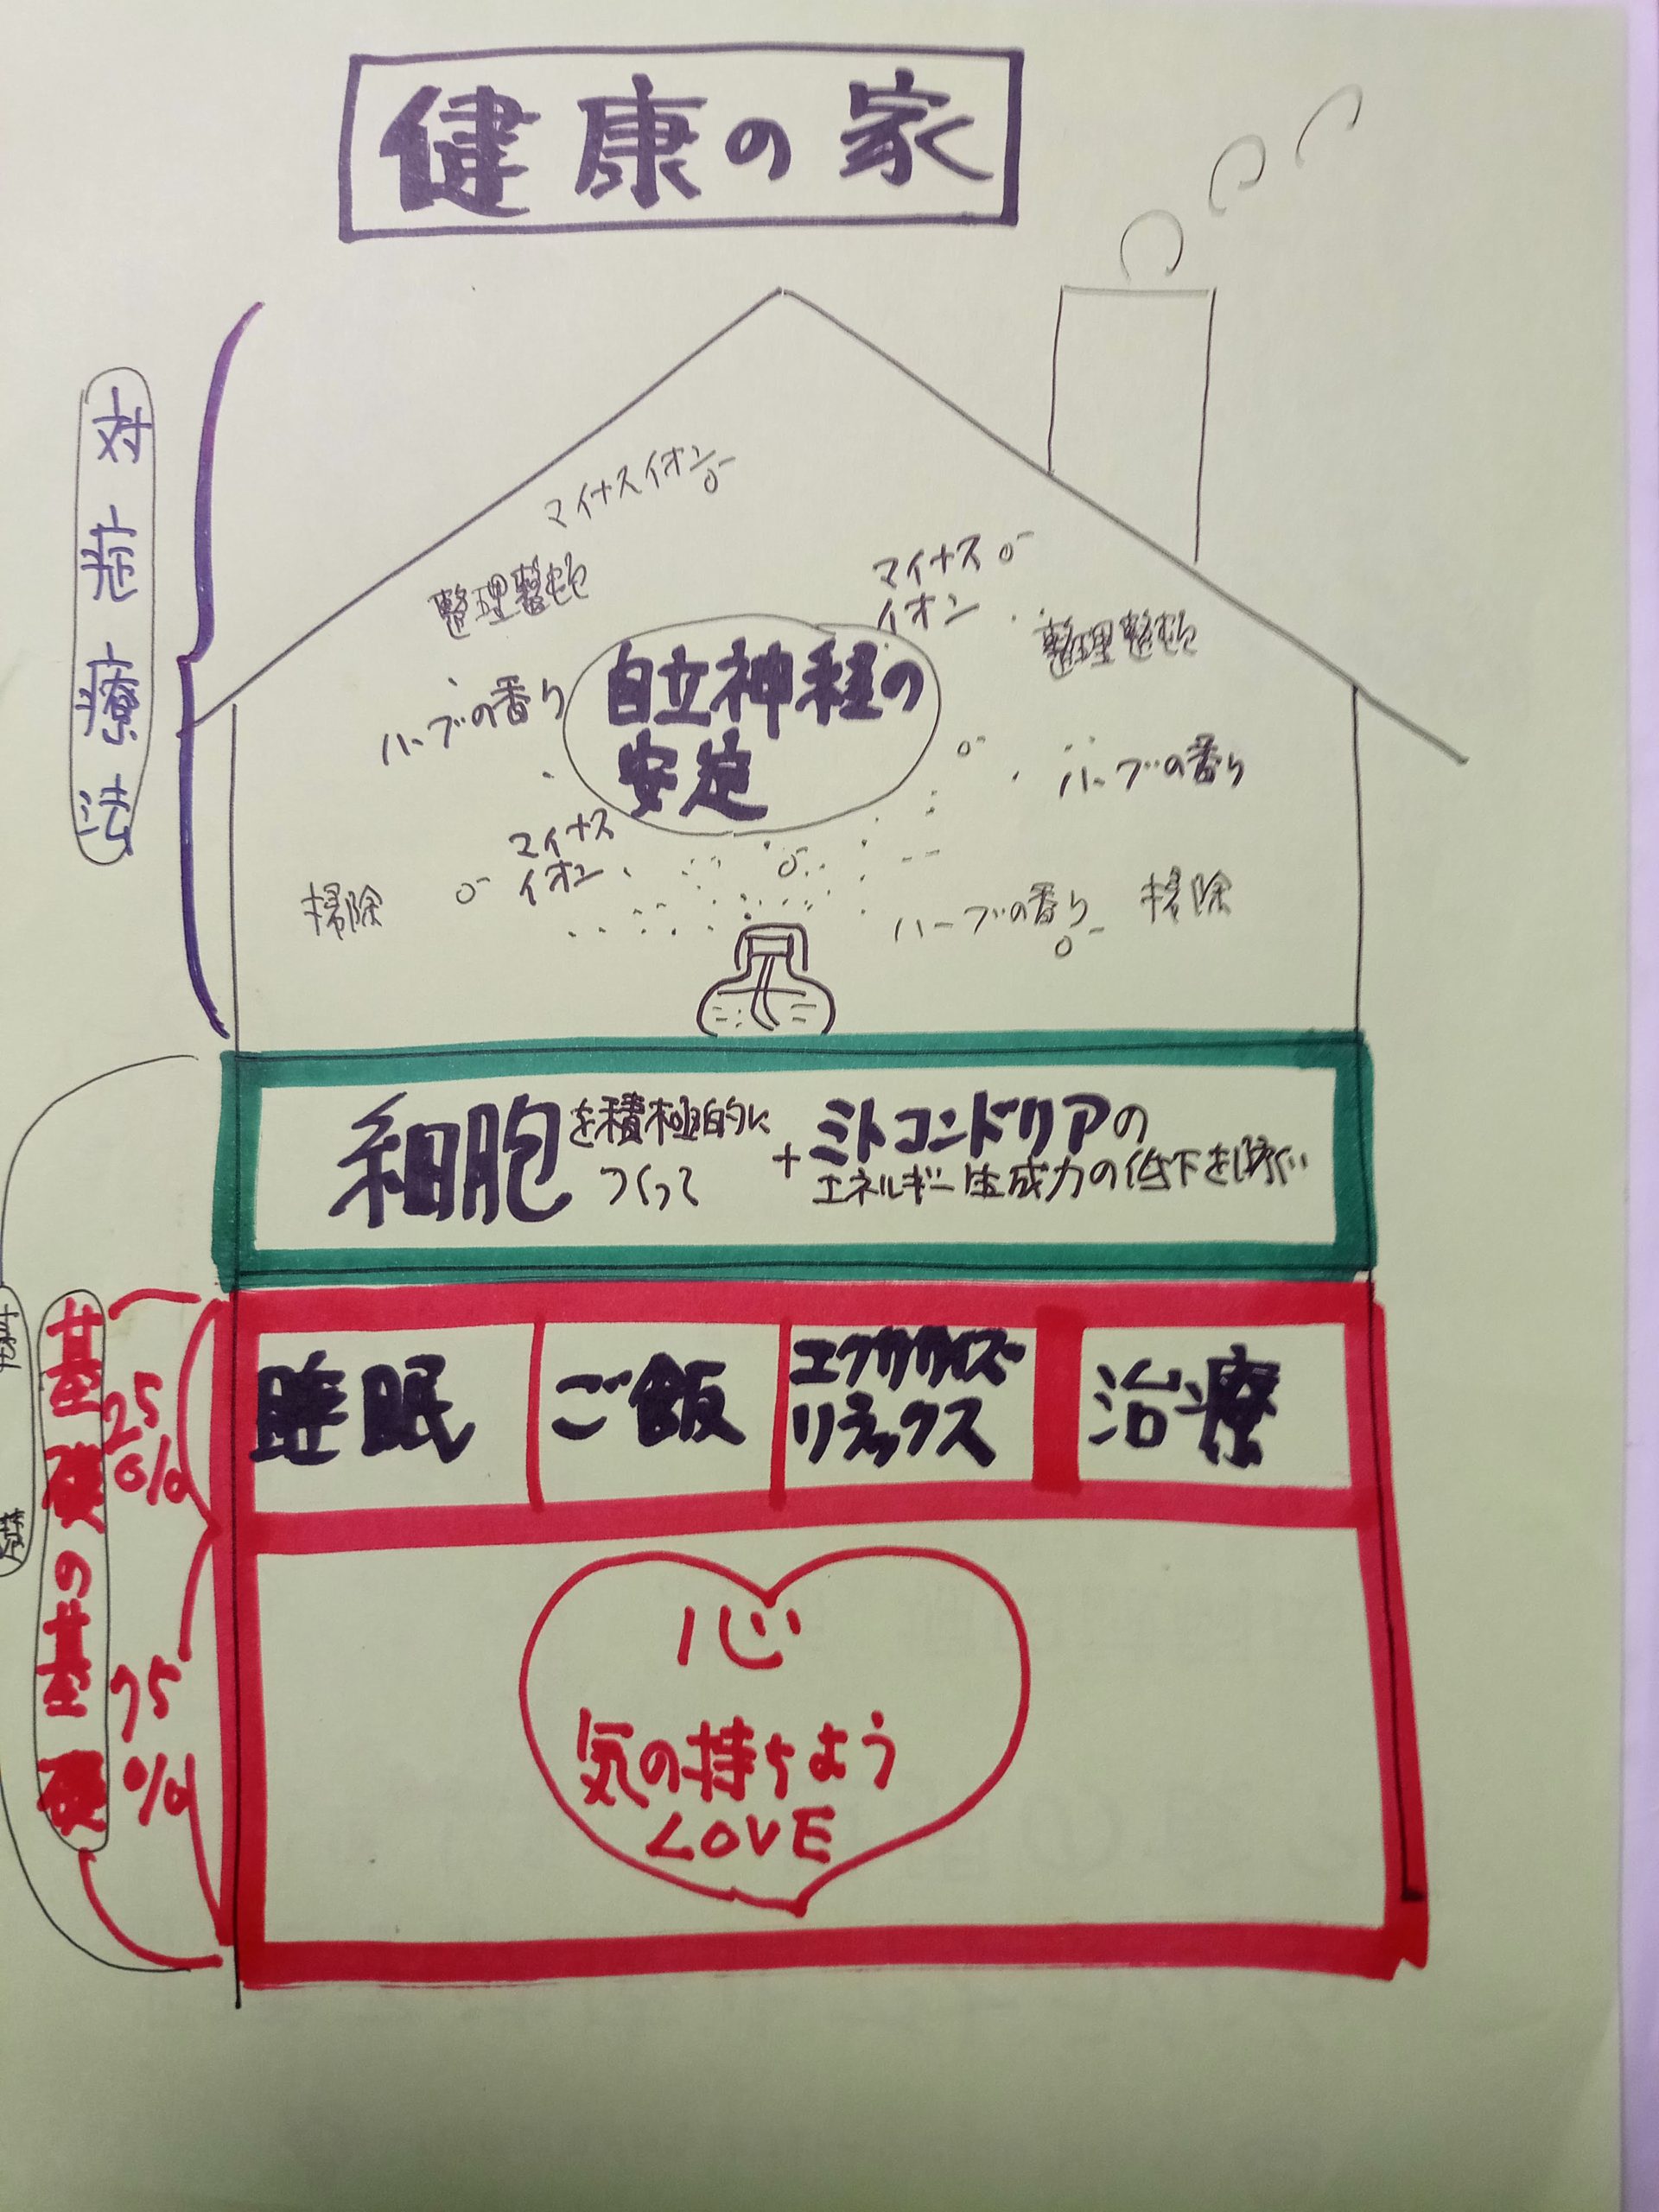 健康の家
対症療法
マイナスイオン
整理整頓
マイナス
イオン
整理整頓
ハーブの香り
自立神経の
安定
ハーブの香り
マイナス
イオン
掃除
ハーブの香り
掃除
細胞を積極的に
つくって
+ミトコンドリアの
エネルギー生成力の低下を防ぐ
基礎の基礎
25
%
睡眠
ご飯
エクササイズ
リラックス
治療
75
%
心
気の持ちよう
LOVE